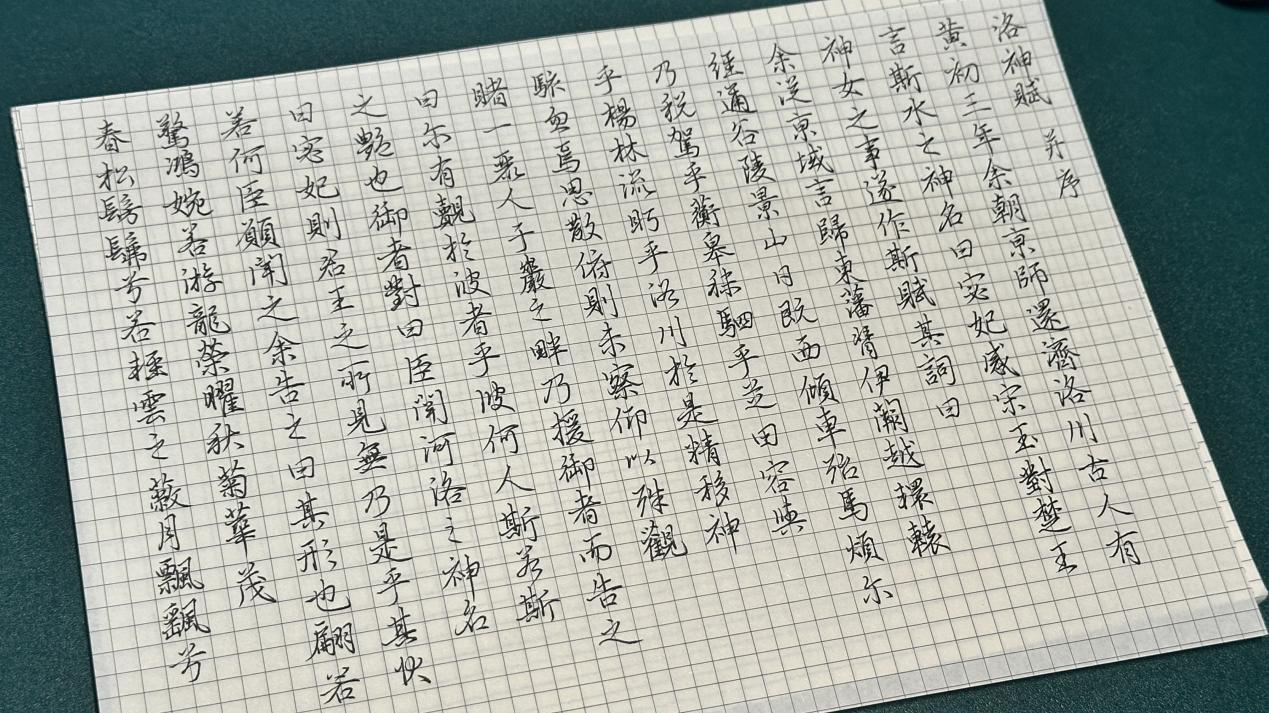 洛神賦 并序
黄初三年余朝京師還濟洛川古人有
言斯水之神名曰宓妃感宋玉對楚王
神女之事遂作斯賦其詞曰
余從京域言歸東藩背伊闕越轘轅
經通谷陵景山日既西傾車殆馬煩尔
乃税駕乎蘅皋秣駟乎芝田容與
乎楊林流眄乎洛川於是精移神
駭忽焉思散俯則未察仰以殊觀
睹一麗人于巖之畔乃援御者而告之
曰尔有覿於彼者乎彼何人斯若斯
之艷也御者對曰臣聞河洛之神名
曰宓妃則君王之所見無乃是乎其狀
若何臣願聞之余告之曰其形也翩若
驚鴻婉若游龍榮曜秋菊華茂
春松髣髴兮若輕雲之蔽月飄颻兮